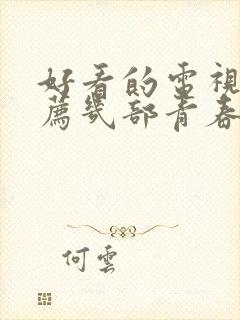 好看的電視
薦幾部青春
何雲